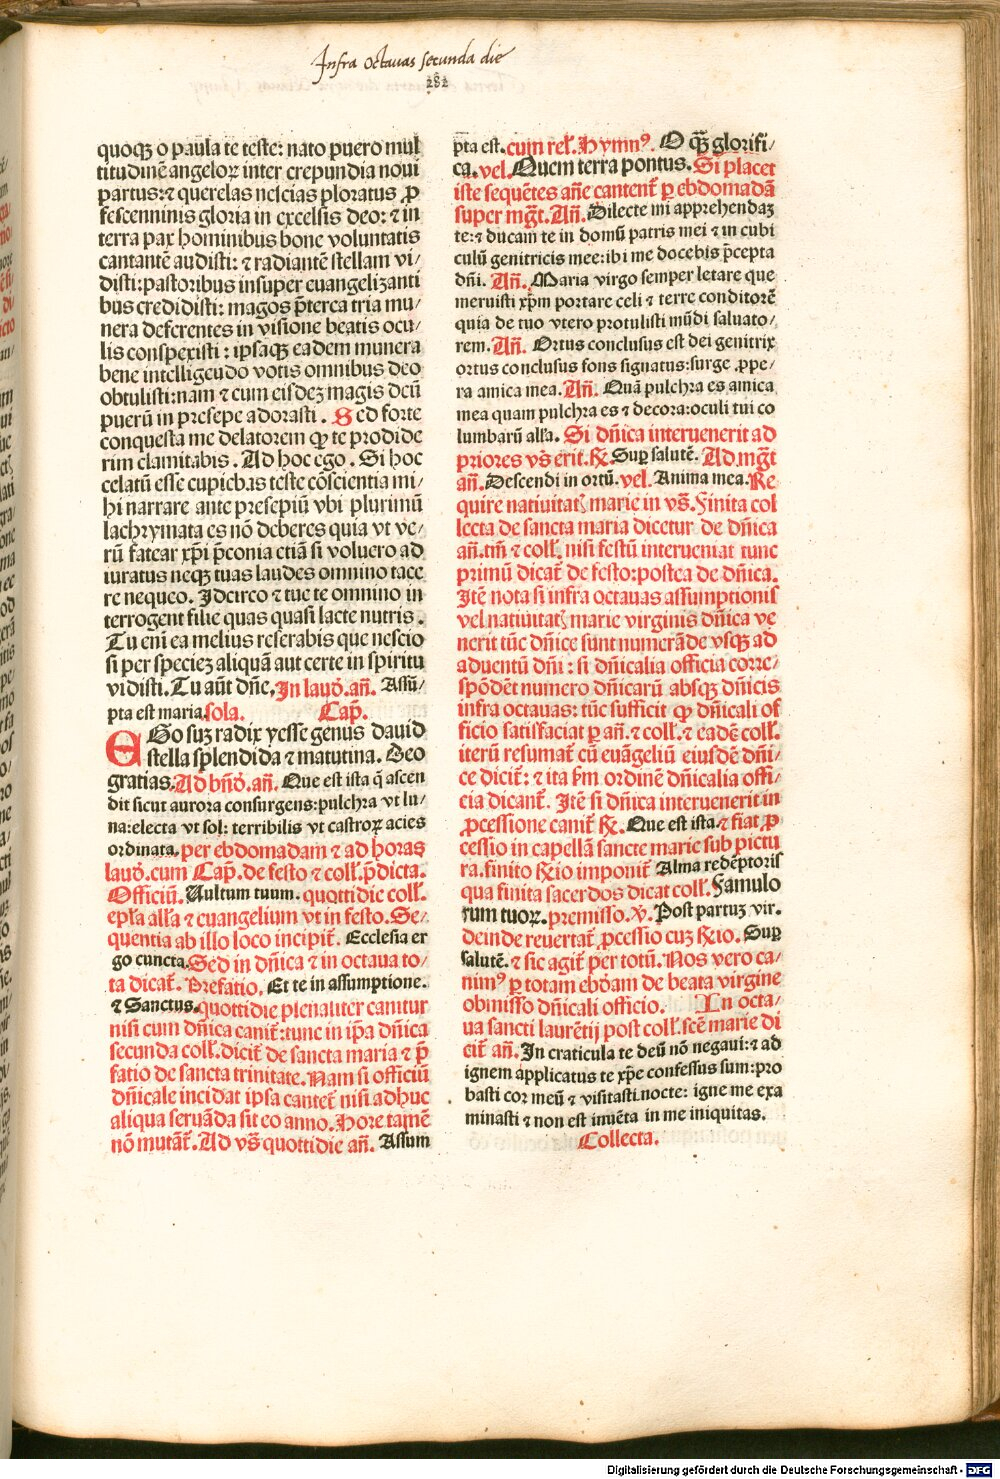 Infra octauas secunda die
282
quoqꝫ o paula te teste: nato puero mul
titudinē angeloꝝ inter crepundia noui
partus: ⁊ querelas nescias ploratus ꝓ
fescenninis gloria in excelsis deo: ⁊ in
terra pax hominibus bone voluntatis
cantantē audisti: ⁊ radiantē stellam vi/
disti: pastoribus insuper euangelizanti
bus credidisti: magos p̄terea tria mu/
nera deferentes in visione beatis ocu/
lis conspexisti: ipsaqꝫ eadem munera
bene intelligendo votis omnibus deo
obtulisti: nam ⁊ cum eisdeꝫ magis deū
puerū in presepe adorasti. Sed forte
conquesta me delatorem ꝙ te prodide
rim clamitabis. Ad hoc ego. Si hoc
celatū esse cupiebas teste cōscientia mi/
hi narrare ante presepiū vbi plurimū
lachrymata es nō deberes quia vt ve/
rū fatear xp̄i p̄conia etiā si voluero ad
iuratus neqꝫ tuas laudes omnino tace
re nequeo. Idcirco ⁊ tuc te omnino in
terrogent filie quas quasi lacte nutris.
Tu eni ea melius reserabis que nescio
si per specieꝫ aliquā aut certe in spiritu
vidisti. Tu aūt dn̄e. In laud̄. an̄. Assū/
pta est maria. sola. Cap̄.
EGo suꝫ radix yesse genus dauid
stella splendida ⁊ matutina. Deo
gratias. Ad bn̄d̄. an̄. Que est ista q̄ ascen
dit sicut aurora consurgens: pulchra vt lu/
na: electa vt sol: terribilis vt castroꝝ acies
ordinata. per ebdomadam ⁊ ad horas
laud̄. cum Cap̄. de festo ⁊ coll̄. p̄dicta.
Officiū. Uultum tuum. quottidie coll̄.
epl̄a all̄a ⁊ euangelium vt in festo. Se/
quentia ab illo loco incipit̄. Ecclesia er
go cuncta. Sed in dn̄ica ⁊ in octaua to/
ta dicat̄. Prefatio. Et te in assumptione.
⁊ Sanctus. quottidie plenaliter cantitur
nisi cum dn̄ica canit̄: tunc in ip̄a dn̄ica
secunda coll̄. dicit̄ de sancta maria ⁊ p̄
fatio de sancta trinitate. Nam si officiū
dn̄icale incidat ipsa cantet̄ nisi adhuc
aliqua seruāda sit eo anno. Hore tamē
nō mutāt̄. Ad vs̄ quottidie an̄. Assum
p̄ta est. cum rel̄. Hymnꝰ. O qꝫ̄ glorifi/
ca. vel. Quem terra pontus. Si placet
iste sequētes an̄e cantent̄ ꝑ ebdomadā
super mḡt. An̄. Dilecte mi apprehendaꝫ
te: ⁊ ducam te in domū patris mei ⁊ in cubi
culū genitricis mee: ibi me docebis p̄cepta
dn̄i. An̄. Maria virgo semper letare que
meruisti xp̄m portare celi ⁊ terre conditorē
quia de tuo vtero protulisti mūdi saluato/
rem. An̄. Ortus conclusus est dei genitrix
ortus conclusus fons signatus: surge ꝓpe/
ra amica mea. An̄. Quā pulchra es amica
mea quam pulchra es ⁊ decora: oculi tui co
lumbarū all̄a. Si dn̄ica interuenerit ad
priores vs̄ erit. ℟. Suꝑ salutē. Ad. mḡt
an̄. Descendi in ortū. vel. Anima mea. Re
quire natiuitatꝭ marie in vs̄. Finita col
lecta de sancta maria dicetur de dn̄ica
an̄. tm̄ ⁊ coll̄. nisi festū interueniat tunc
primū dicat̄ de festo: postea de dn̄ica.
Itē nota si infra octauas assumptionis
vel natiuitatꝭ marie virginis dn̄ica ve
nerit tūc dn̄ice sunt numerāde vsqꝫ ad
aduentū dn̄i: si dn̄icalia officia corre/
spōdēt numero dn̄icarū absqꝫ dn̄icis
infra octauas: tūc sufficit ꝙ dn̄icali of
ficio satisfaciat ꝑ an̄. ⁊ coll̄. ⁊ eadē coll̄.
iterū resumat̄ cū euāgeliū eiusdē dn̄i/
ce dicit̄: ⁊ ita ẜm ordinē dn̄icalia offi/
cia dicant̄. Itē si dn̄ica interuenerit in
ꝓcessione canit̄ ℟. Que est ista. ⁊ fiat ꝓ
cessio in capellā sancte marie sub pictu
ra. finito ℟io imponit̄ Alma redēptoris
qua finita sacerdos dicat coll̄. Famulo
rum tuoꝝ. premisso. ℣. Post partuꝫ vir.
deinde reuertat̄ ꝓcessio cuꝫ ℟io. Suꝑ
salutē. ⁊ sic agit̄ per totū. Nos vero ca/
nimꝰ ꝑ totam ebd̄am de beata virgine
obmisso dn̄icali officio. In octa/
ua sancti laurētij post coll̄. scē marie di
cit̄ an̄. In craticula te deū nō negaui: ⁊ ad
ignem applicatus te xp̄e confessus sum: pro
basti cor meū ⁊ visitasti nocte: igne me exa
minasti ⁊ non est inuēta in me iniquitas.
Collecta.
Digitalisierung gefördert durch die Deutsche Forschungsgemeinschaft - DFG